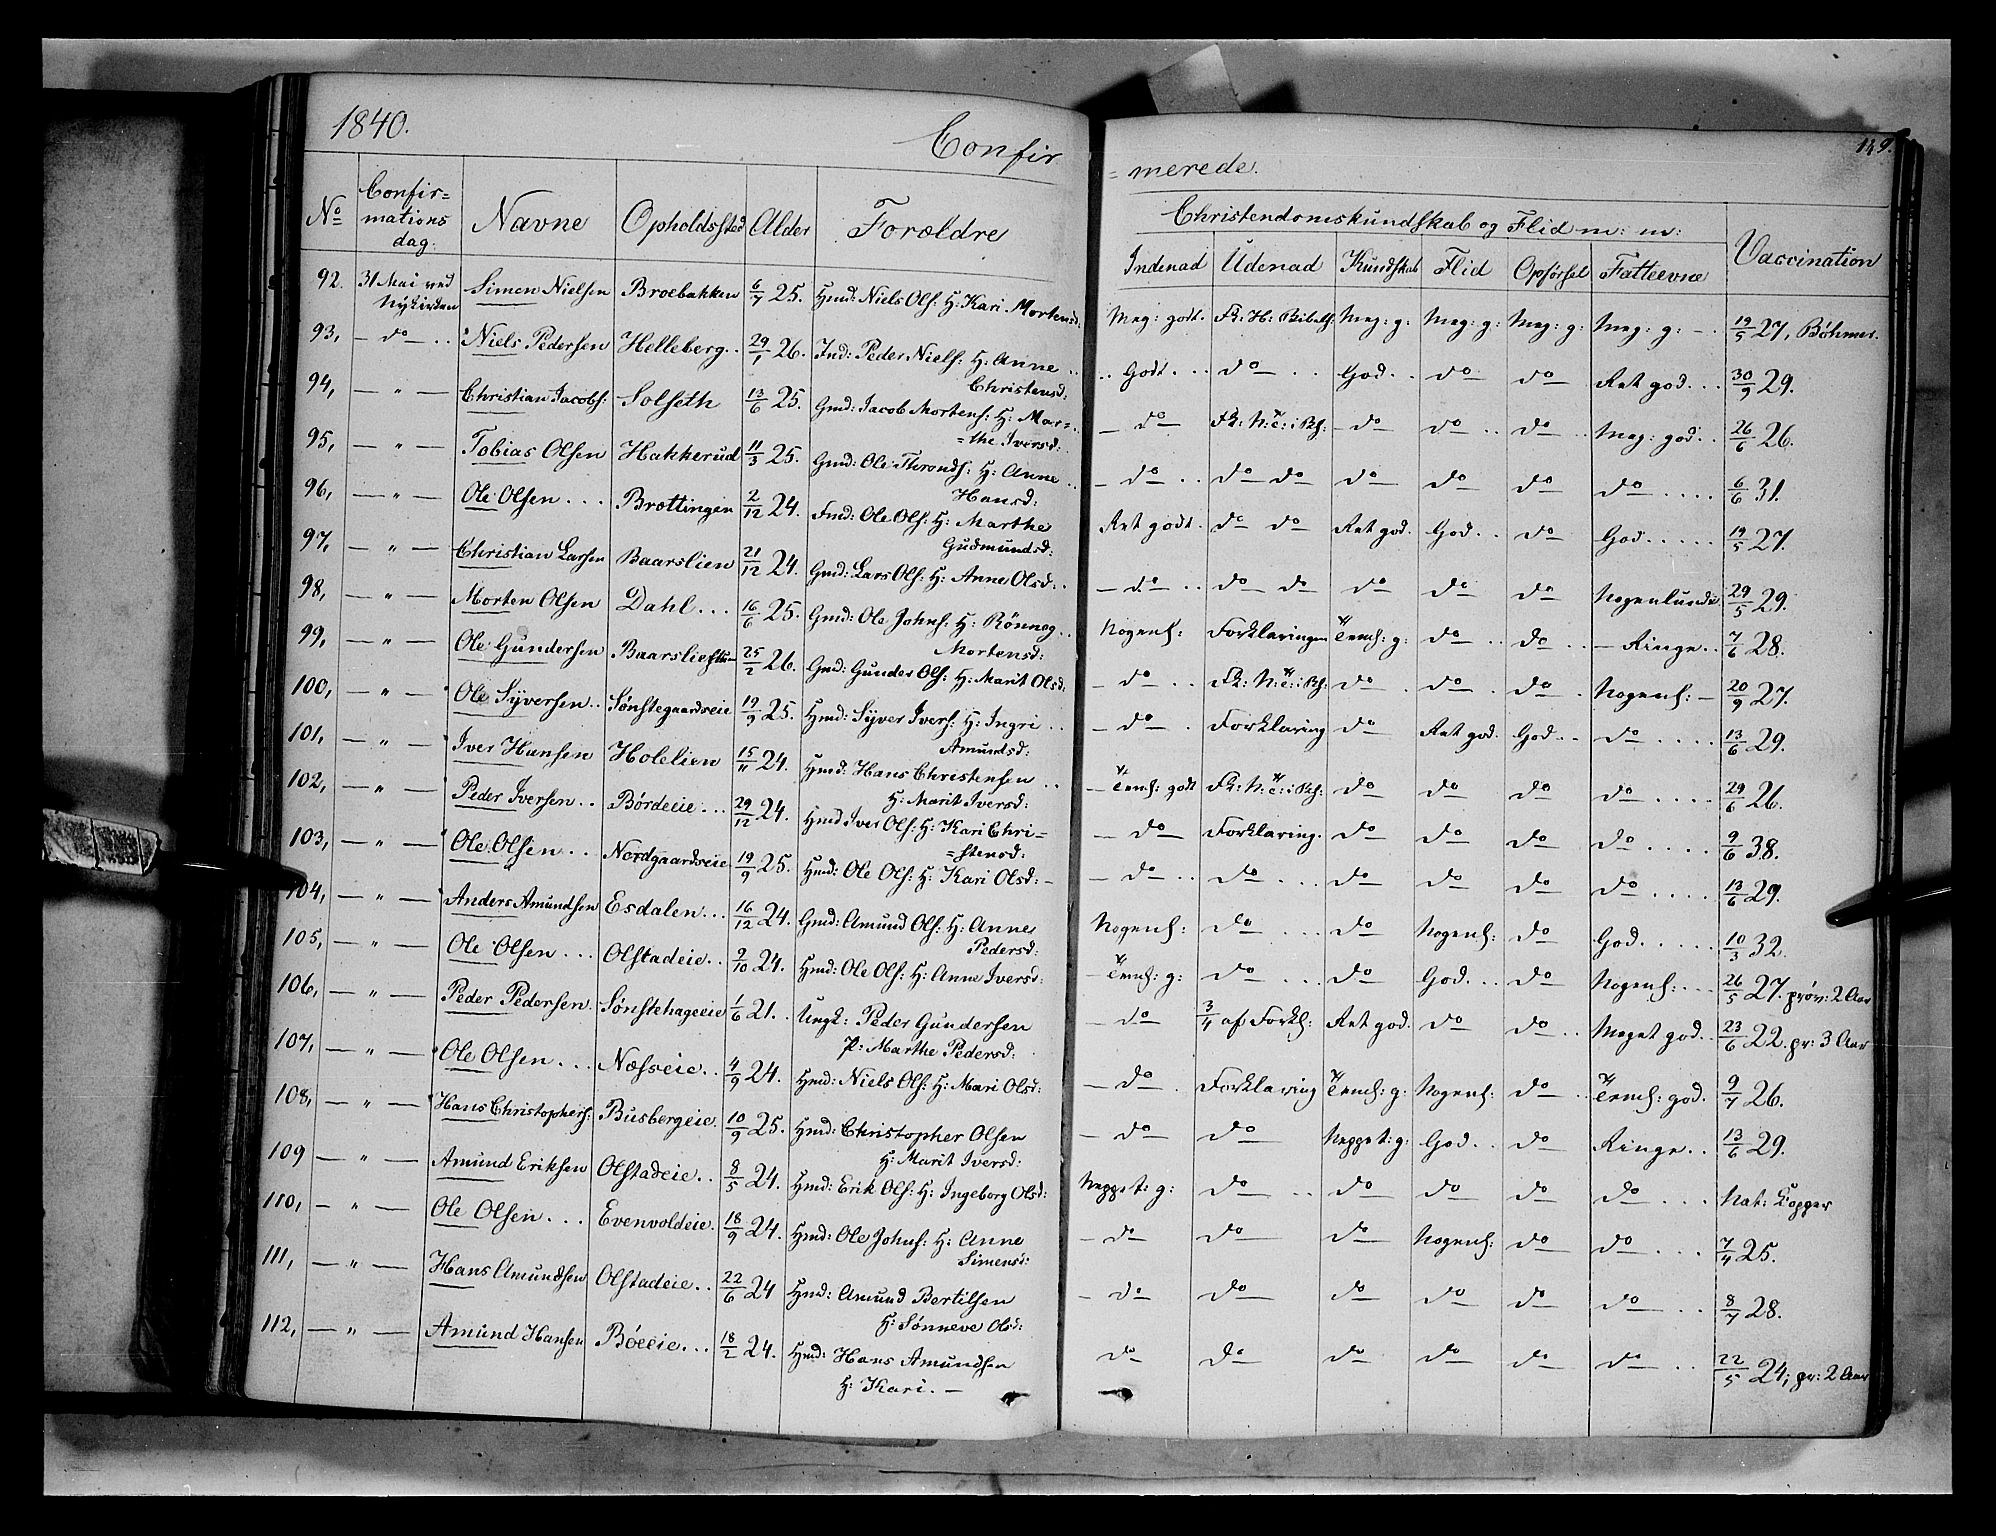 1840.
Confir
= merede.
149.
No
Confir=
mations
dag.
Navne
Opholdssted
Alder
Forældre
Christendomskundskab og Flid m: m:
Indenad
Udenad
Kundskab
Flid
Opførsel
Fatteevne
Vaccination
92. 31 Mai ved Simen Nielsen Broebakken 6/7 25. Hmd: Niels Ols: H: Kari Mortensd: Meg: godt. Fk: H: Bibelh: Meg: g: Meg: g: Meg: g: Meg: g: - . 19/5 27, Böhmer.
Nykirken
93, — do — . . Niels Pedersen Helleberg . . 29/1 26. Ind: Peder Niels: H: Anne . . . . Godt . . . do — . . God . . do do Ret god . . . 30/9 29.
Christensd:
94, — " — Christian Jacobs: Solseth 13/6 25. Gmd: Jacob Mortens: H: Mar= — do Fk: N: T: i Bh: — do do . . do . . Meg: god . . 26/6 26.
=the Iversd:
95, — " — Tobias Olsen Hakkerud 11/3 25. Gmd: Ole Thronds: H: Anne . . — do . . do do do do do do . . . . 6/6 31.
Hansd:
96, — " — Ole Olsen . . . Brottingen 2/12 24. Fmd: Ole Ols: H: Marthe Ret godt. do do Ret god. God . . do God . . . . . 19/5 27.
Gudmundsd:
97, — " — Christian Larsen Baarslien 21/12 24. Gmd: Lars Ols: H: Anne Olsd: . . — do . . do do do do do Nogenlunde 29/5 29.
98, — " — Morten Olsen Dahl . . . 16/6 25. Gmd: Ole Johns: H: Rönnog . . Nogens: Forklaringen Tems: g: do . . do . . — Ringe . . 7/6 28.
Mortensd:
99, — " Ole Gundersen Baarsliehuun 25/2 26. Gmd: Gunder Ols: H: Marit Olsd: — do . . Fk: N: T: i Bh: do . do . do . Nogens: — 20/9 27.
100, — " — Ole Syversen . . Sønstegaardseie 19/9 25. Hmd: Syver Ivers: H: Ingri . . . — do . Forklaring do Ret god. God . . do . . . . 13/6 29.
Amundsd:
101, — " — Iver Hansen Holelien 15/11 24. Hmd: Hans Christensen . . — Tems: godt Fk: N: T: i Bh: do do do do . . . . 29/6 26.
H: Marit Iversd:
102, — " — Peder Iversen . . Bördeeie . . . 29/12 24. Hmd Iver Ols: H: Kari Chri= — do Forklaring. do do do do . . . . 9/6 38.
=stensd:
103, — " — Ole Olsen . . Nordgaardseie 19/9 25. Hmd: Ole Ols: H: Kari Olsd: — — do . . do . . . do do do do . . . . 13/6 29.
104, — " — Anders Amundsen Esdalen . . . 16/12 24. Gmd: Amund Ols: H: Anne Nogens: do . . . do Nogens: do God . . . . . 10/3 32.
Pedersd:
105, — " — Ole Olsen . . . Olstadeie . . 9/10 24. Hmd: Ole Ols: H: Anne Iversd: — Tems: g: do . . . do God . . do Nogens: . . . 26/5 27. prøv: 2 Aar
106, — " — Peder Pedersen Sønstehageeie 1/6 21. . Ungk: Peder Gundersen — do 3/4 af Forkl: Ret god. do do . . Meget god . . 23/6 22. pr: 3 Aar
P: Marthe Pedersd:
107, — " — Ole Olsen . . . Næsseie . . 4/9 24. Hmd: Niels Ols: H: Mari Olsd: — do . Forklaring Tems: g: Nogens: do . . Tems: god. 9/7 26.
108, — " — Hans Christophers: Busbergeie. 10/9 25. Hmd: Christopher Olsen — do do Neppet: g: God . . do Ringe . . 13/6 29.
H: Marit Iversd:
109 — " — Amund Eriksen Olstadeie . . 8/5 24. Hmd: Erik Ols: H: Ingeborg Olsd: Neppet: g: do . . do do do do . . . Nat: Kopper
110, — " — Ole Olsen . . . Evenvoldeie. 18/9 24. Hmd: Ole Johns: H: Anne — do do do Nogens: do do . . . 7/4 25.
Simensd:
111, — " — Hans Amundsen Olstadeie . . 22/6 24 Hmd: Amund Bertilsen — do do do do do do . . 8/7 28.
H: Sønneve Olsd:
112, — " — Amund Hansen Böeeie . . . 18/2 24. Hmd: Hans Amundsen do do do do do do . . 22/5 24; pr: 2 Aar
H: Kari. —